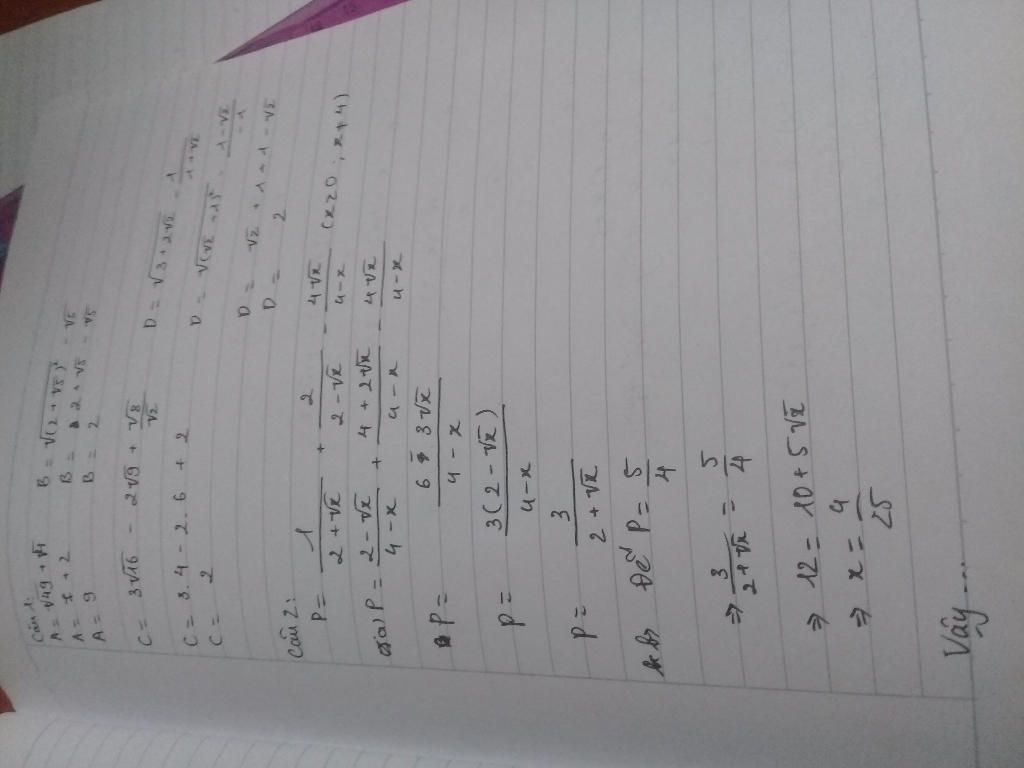 Câu 1:
A = √49 + √4 B = √(2+√5)² - √5
A = 7 + 2 B = 2 + √5 - √5
A = 9 B = 2
C = 3√16 - 2√9 + √8/√2 D = √3+2√2 - 1/1+√2
C = 3.4 - 2.6 + 2 D = √(√2+1)² - 1-√2/-1
C = 2 D = √2 + 1 + 1 - √2
D = 2
Câu 2:
P = 1/2+√x + 2/2-√x - 4√x/4-x (x≥0, x≠4)
a) P = 2-√x/4-x + 4+2√x/4-x - 4√x/4-x
P = 6-3√x/4-x
P = 3(2-√x)/4-x
P = 3/2+√x
b) Để P = 5/4
⇒ 3/2+√x = 5/4
⇒ 12 = 10 + 5√x
⇒ x = 4/25
Vậy ....